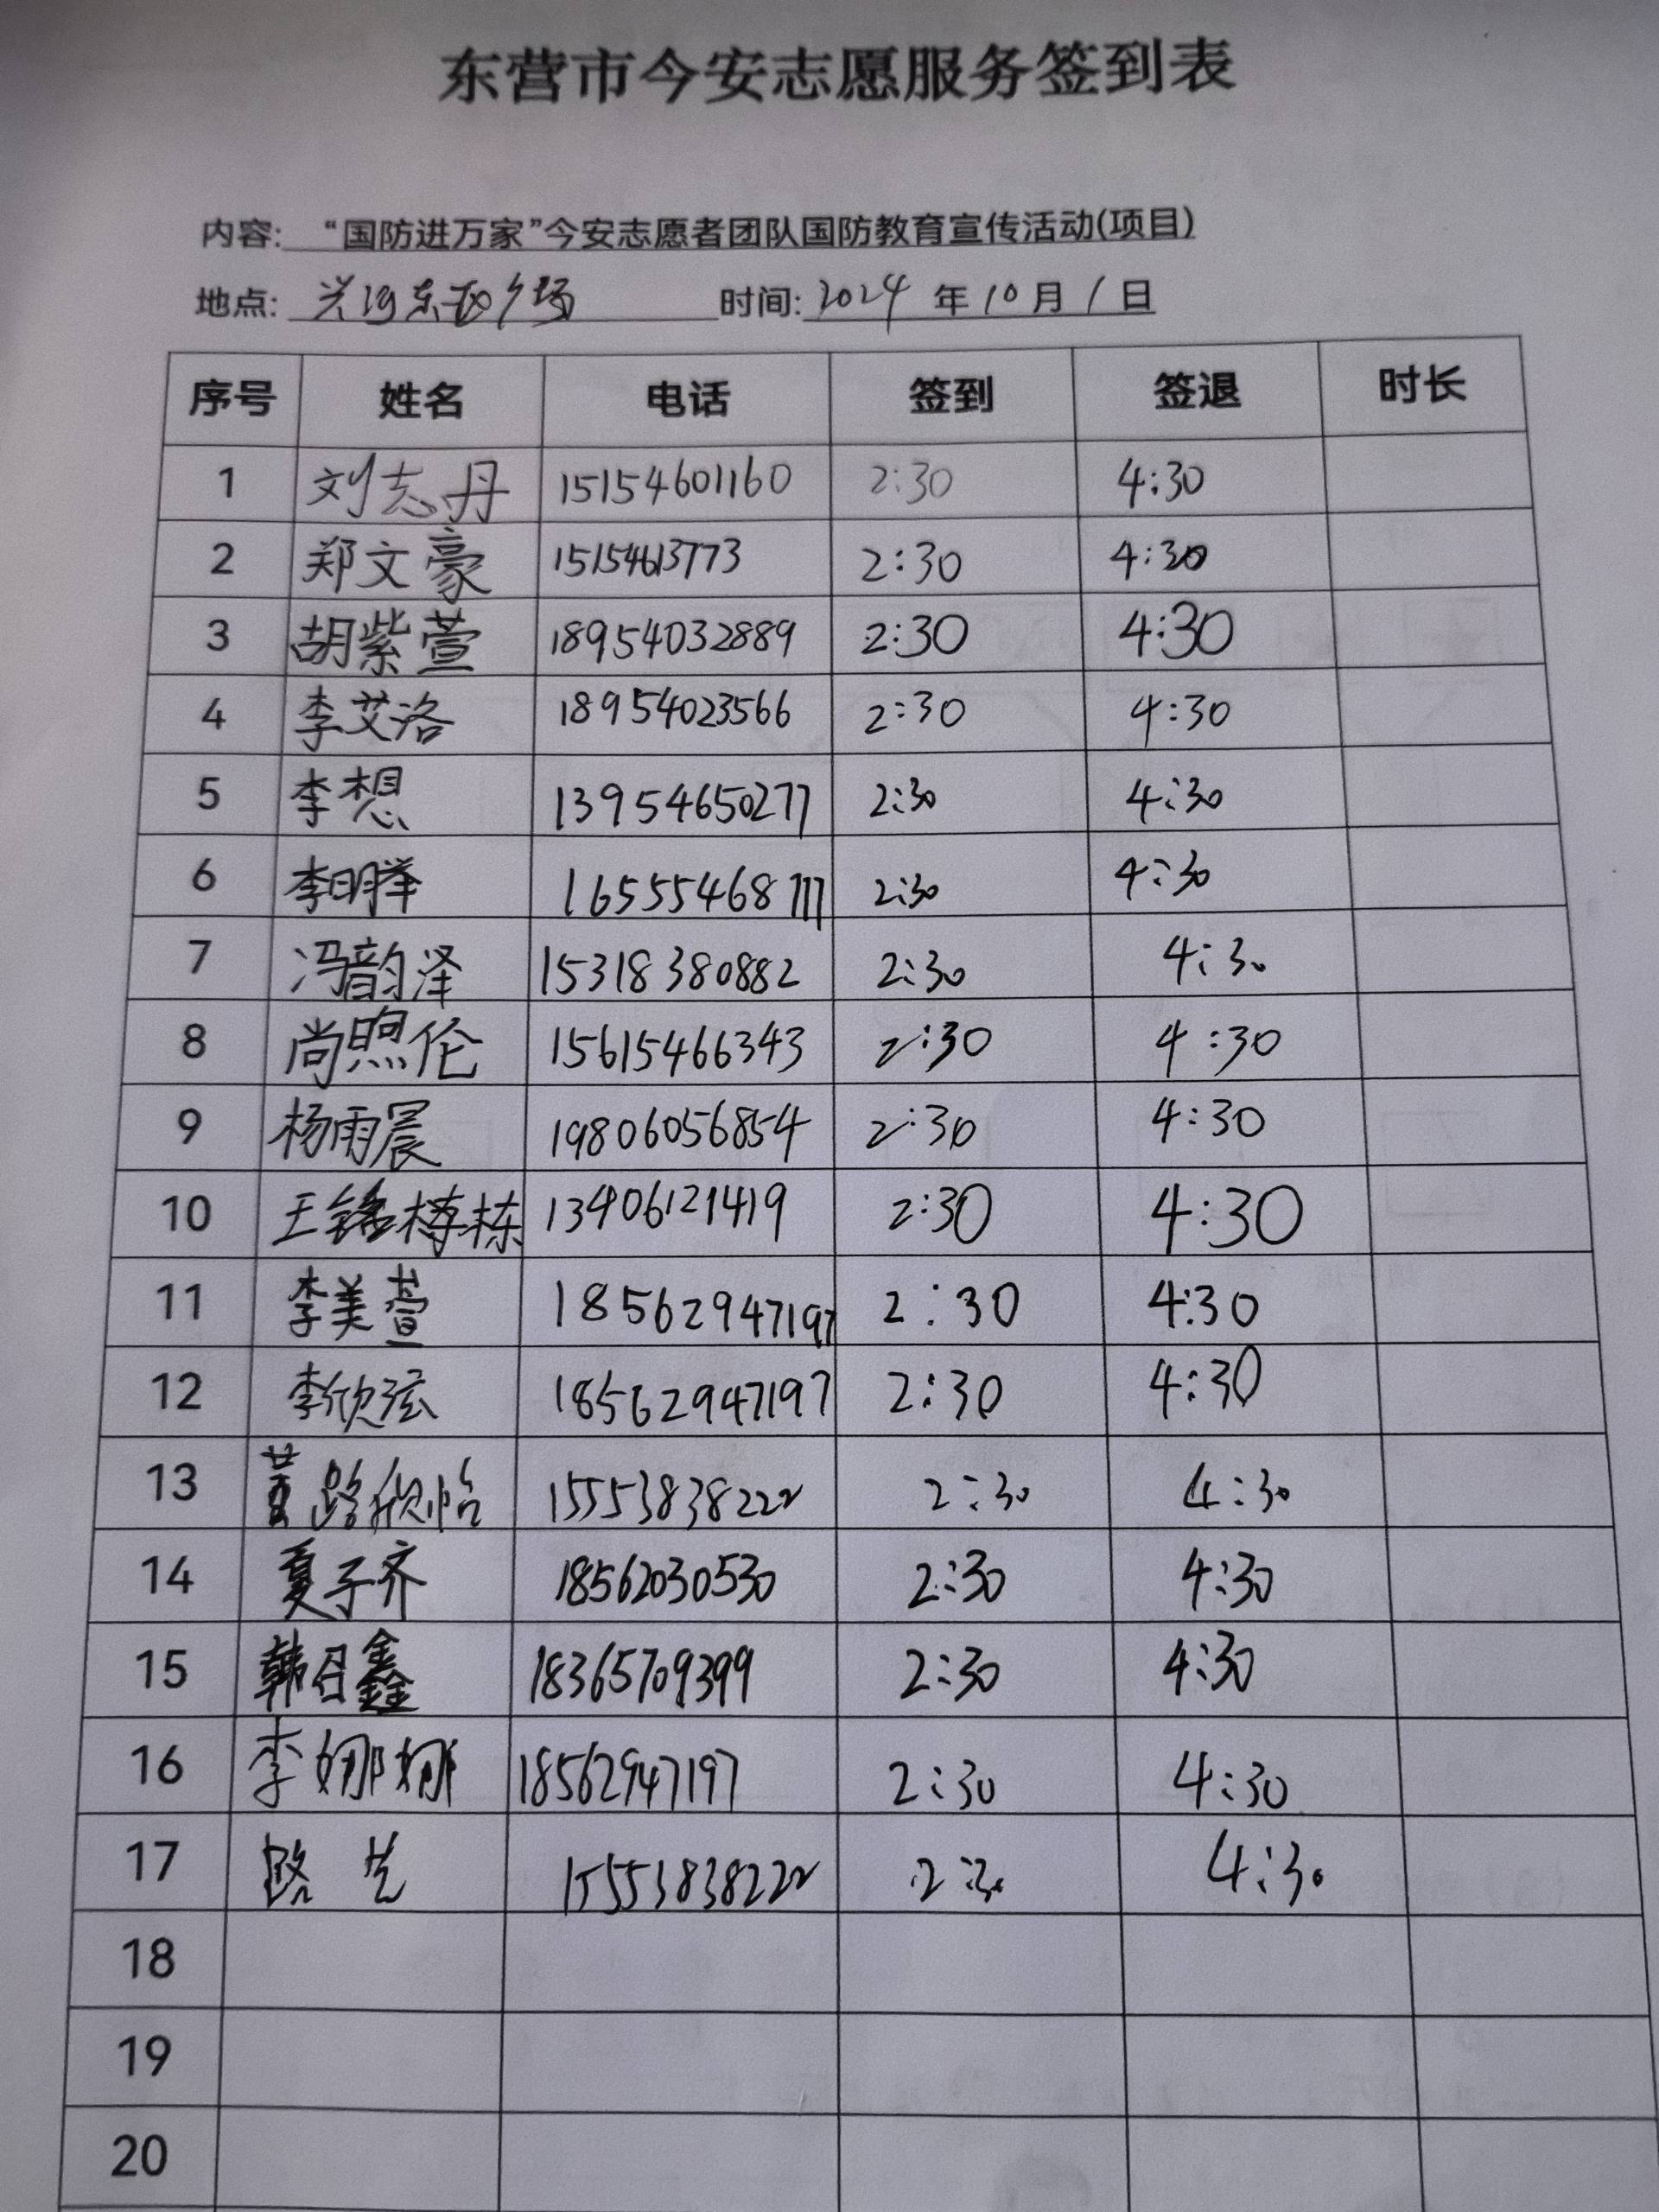 东营市今安志愿服务签到表
内容: “国防进万家”今安志愿者团队国防教育宣传活动(项目)
地点: 时间: 2024 年 10 月 1 日
序号 姓名 电话 签到 签退 时长
1 刘志丹 15154601160 2:30 4:30
2 郑文豪 15154613773 2:30 4:30
3 胡紫萱 18954032889 2:30 4:30
4 李艾洛 18954023566 2:30 4:30
5 李想 13954650277 2:30 4:30
6 李明 16555468777 2:30 4:30
7 冯韵泽 15318380882 2:30 4:30
8 尚煦伦 15615466343 2:30 4:30
9 杨雨晨 19806056854 2:30 4:30
10 王铭 栋 13406121419 2:30 4:30
11 李美萱 18562947197 2:30 4:30
12 李欣泫 18562947197 2:30 4:30
13 董路欣怡 15553838222 2:30 4:30
14 夏子齐 18562030530 2:30 4:30
15 韩召鑫 18365709399 2:30 4:30
16 李娜娜 18562947197 2:30 4:30
17 路 15553838222 2:30 4:30
18
19
20